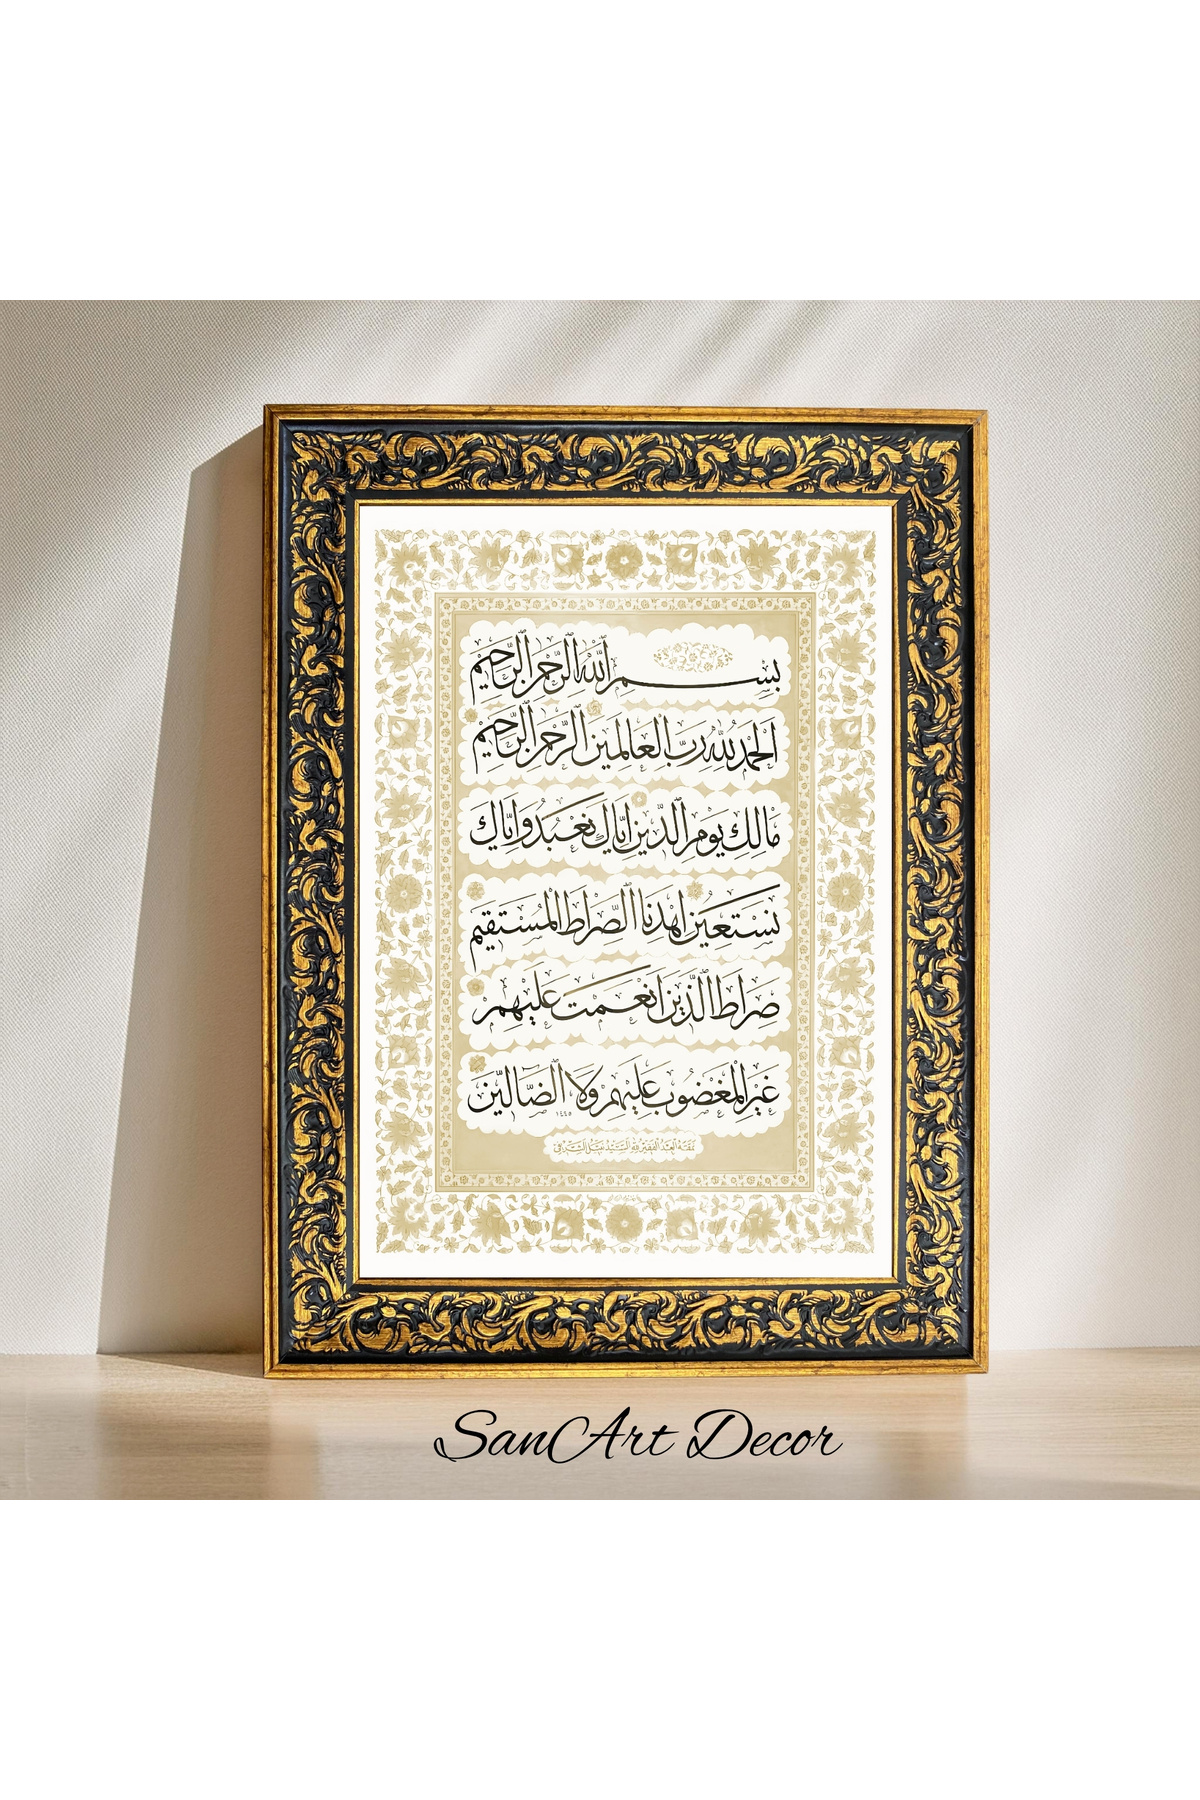 بِسْمِ اللَّهِ الرَّحْمَنِ الرَّحِيمِ
الْحَمْدُ لِلَّهِ رَبِّ الْعَالَمِينَ الرَّحْمَنِ الرَّحِيمِ
مَالِكِ يَوْمِ الدِّينِ إِيَّاكَ نَعْبُدُ وَإِيَّاكَ
نَسْتَعِينُ اهْدِنَا الصِّرَاطَ الْمُسْتَقِيمَ
صِرَاطَ الَّذِينَ أَنْعَمْتَ عَلَيْهِمْ
غَيْرِ الْمَغْضُوبِ عَلَيْهِمْ وَلَا الضَّالِّينَ
١٤٤٥
SanArt Decor